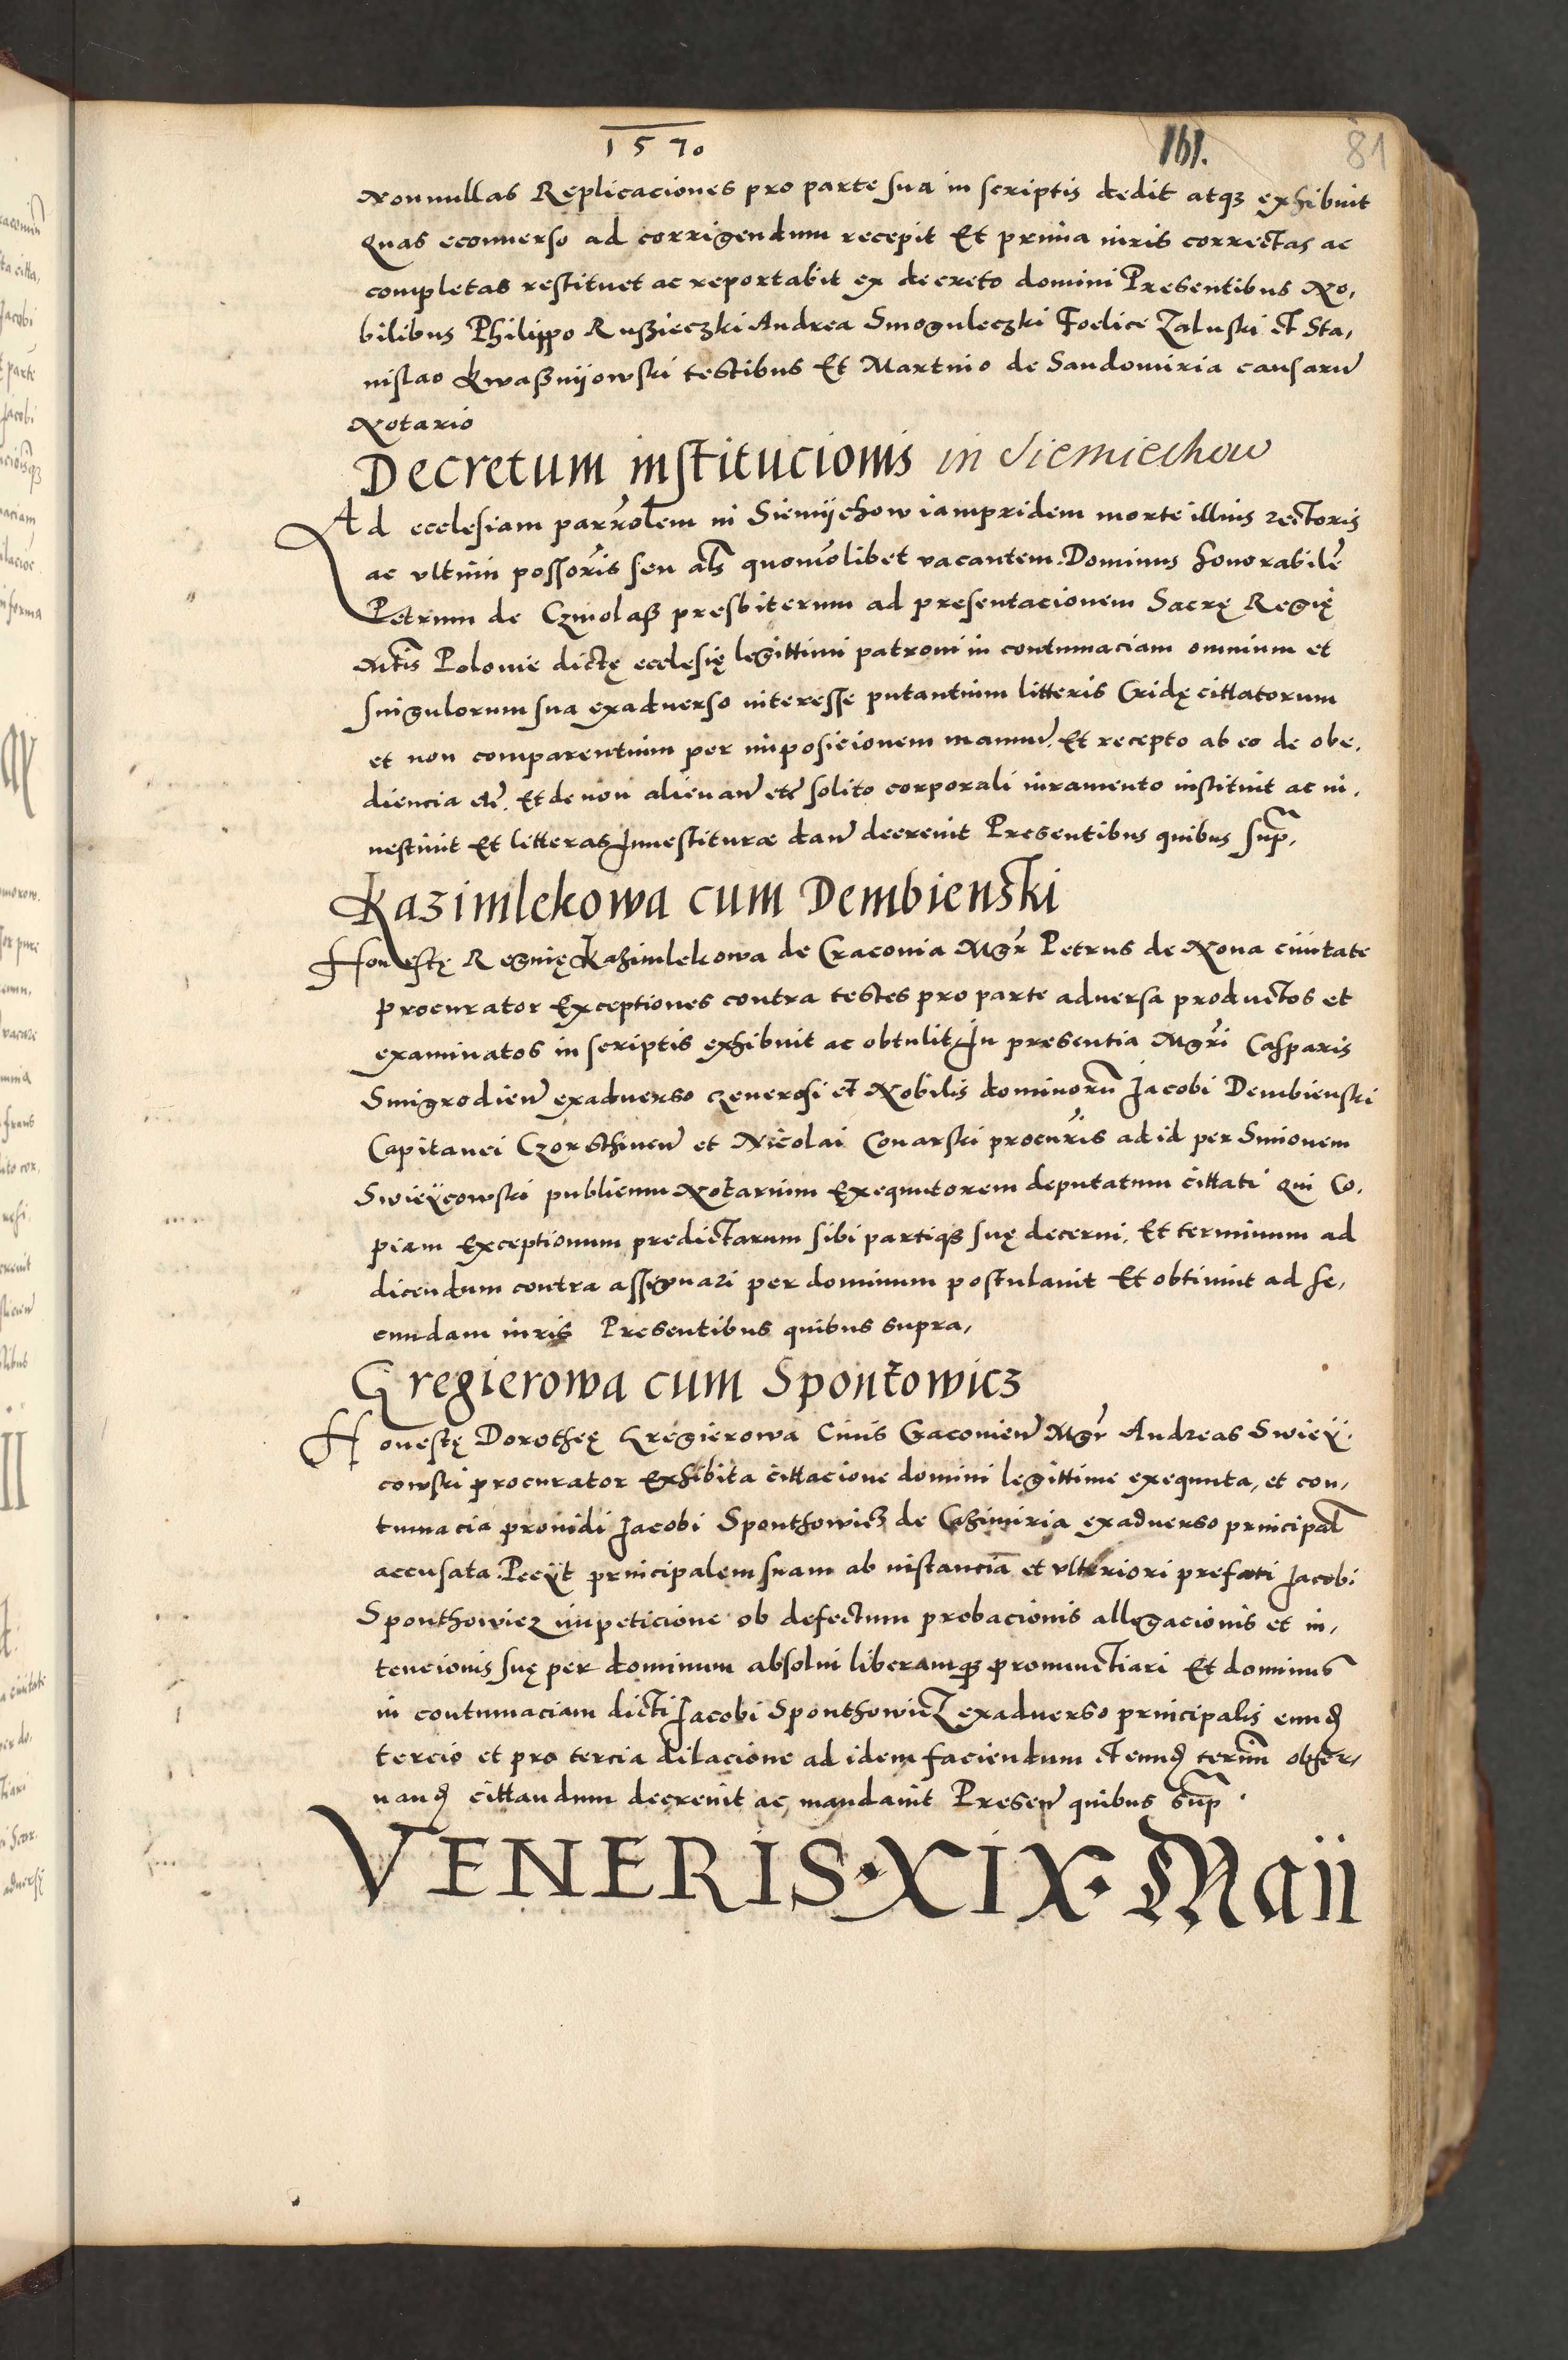 1570
161.
81
Nonnullas Replicaciones pro parte sua in scriptis dedit atqꝫ exhibuit
Quas econuerso ad corrigendum recepit Et prima iuris correctas ac
completas restituet ac reportabit ex decreto domini Presentibus No,
bilibus Philippo Rußieczki Andrea Smoguleczki Foelice Zaluski et Sta,
nislao Kwaßnijowski testibus Et Martino de Sandomiria causarū
Notario
Decretum institucionis in Siemiechow
Ad ecclesiam parrolem in Siemijchow iampridem morte illius rectoris
ac vltimi possoris seu als quomolibet vacantem. Dominus honorabilē
Petrum de Czmolaß presbiterum ad presentacionem Sacrę Regię
Mtis Polonie dictę ecclesię legittimi patroni in contumaciam omnium et
singulorum sua exaduerso interesse putantium litteris Cridę cittatorum
et non comparentium per imposicionem manuū. Et recepto ab eo de obe,
diencia etc̄. Et de non alienan̄ etc̄ solito corporali iuramento instituit ac in,
uestiuit Et litteras Inuestiturae dan̄ decreuit Presentibus quibus supᷓ,
Kazimlekowa cum Dembienski
Honestę Regnię Kazimlekowa de Cracouia Mgr̄ Petrus de Noua ciuitate
procurator Exceptiones contra testes pro parte aduersa productos et
examinatos in scriptis exhibuit ac obtulit In presentia Mgr̄i Casparis
Smigrodien̄ exaduerso Generosi et Nobilis dominorū Jacobi Dembienski
Capitanei Czorschinen̄ et Nicolai Conarski procur̄is ad id per Simonem
Swieÿcowski publicum Notarium Exequutorem deputatum cittati Qui Co,
piam Exceptionum predictarum sibi partiqꝫ suę decerni, Et terminum ad
dicendum contra assignari per dominum postulauit Et obtinuit ad se,
cundam iuris Presentibus quibus supra,
Gregierowa cum Spontowicz
Honestę Dorotheę Gregierowa Ciuis Cracouien̄ Mgr̄ Andreas Swieÿ,
cowski procurator Exhibita cittacione domini legittime exequuta, et con,
tumacia prouidi Jacobi Sponthowicz de Cazimiria exaduerso principal
accusata. Peciÿt principalem suam ab instancia et vlteriori prefati Jacobi
Sponthowicz impeticione ob defectum probacionis allegacionis et in,
tencionis suę per dominum absolui liberamqꝫ pronunctiari Et dominus
in contumaciam dicti Jacobi Sponthowicz exaduerso principalis eund
tercio et pro tercia dilacione ad idem faciendum et eund termīn obser,
uand cittandum decreuit ac mandauit Presen̄ quibus sup̄
VENERIS · XIX · Maii